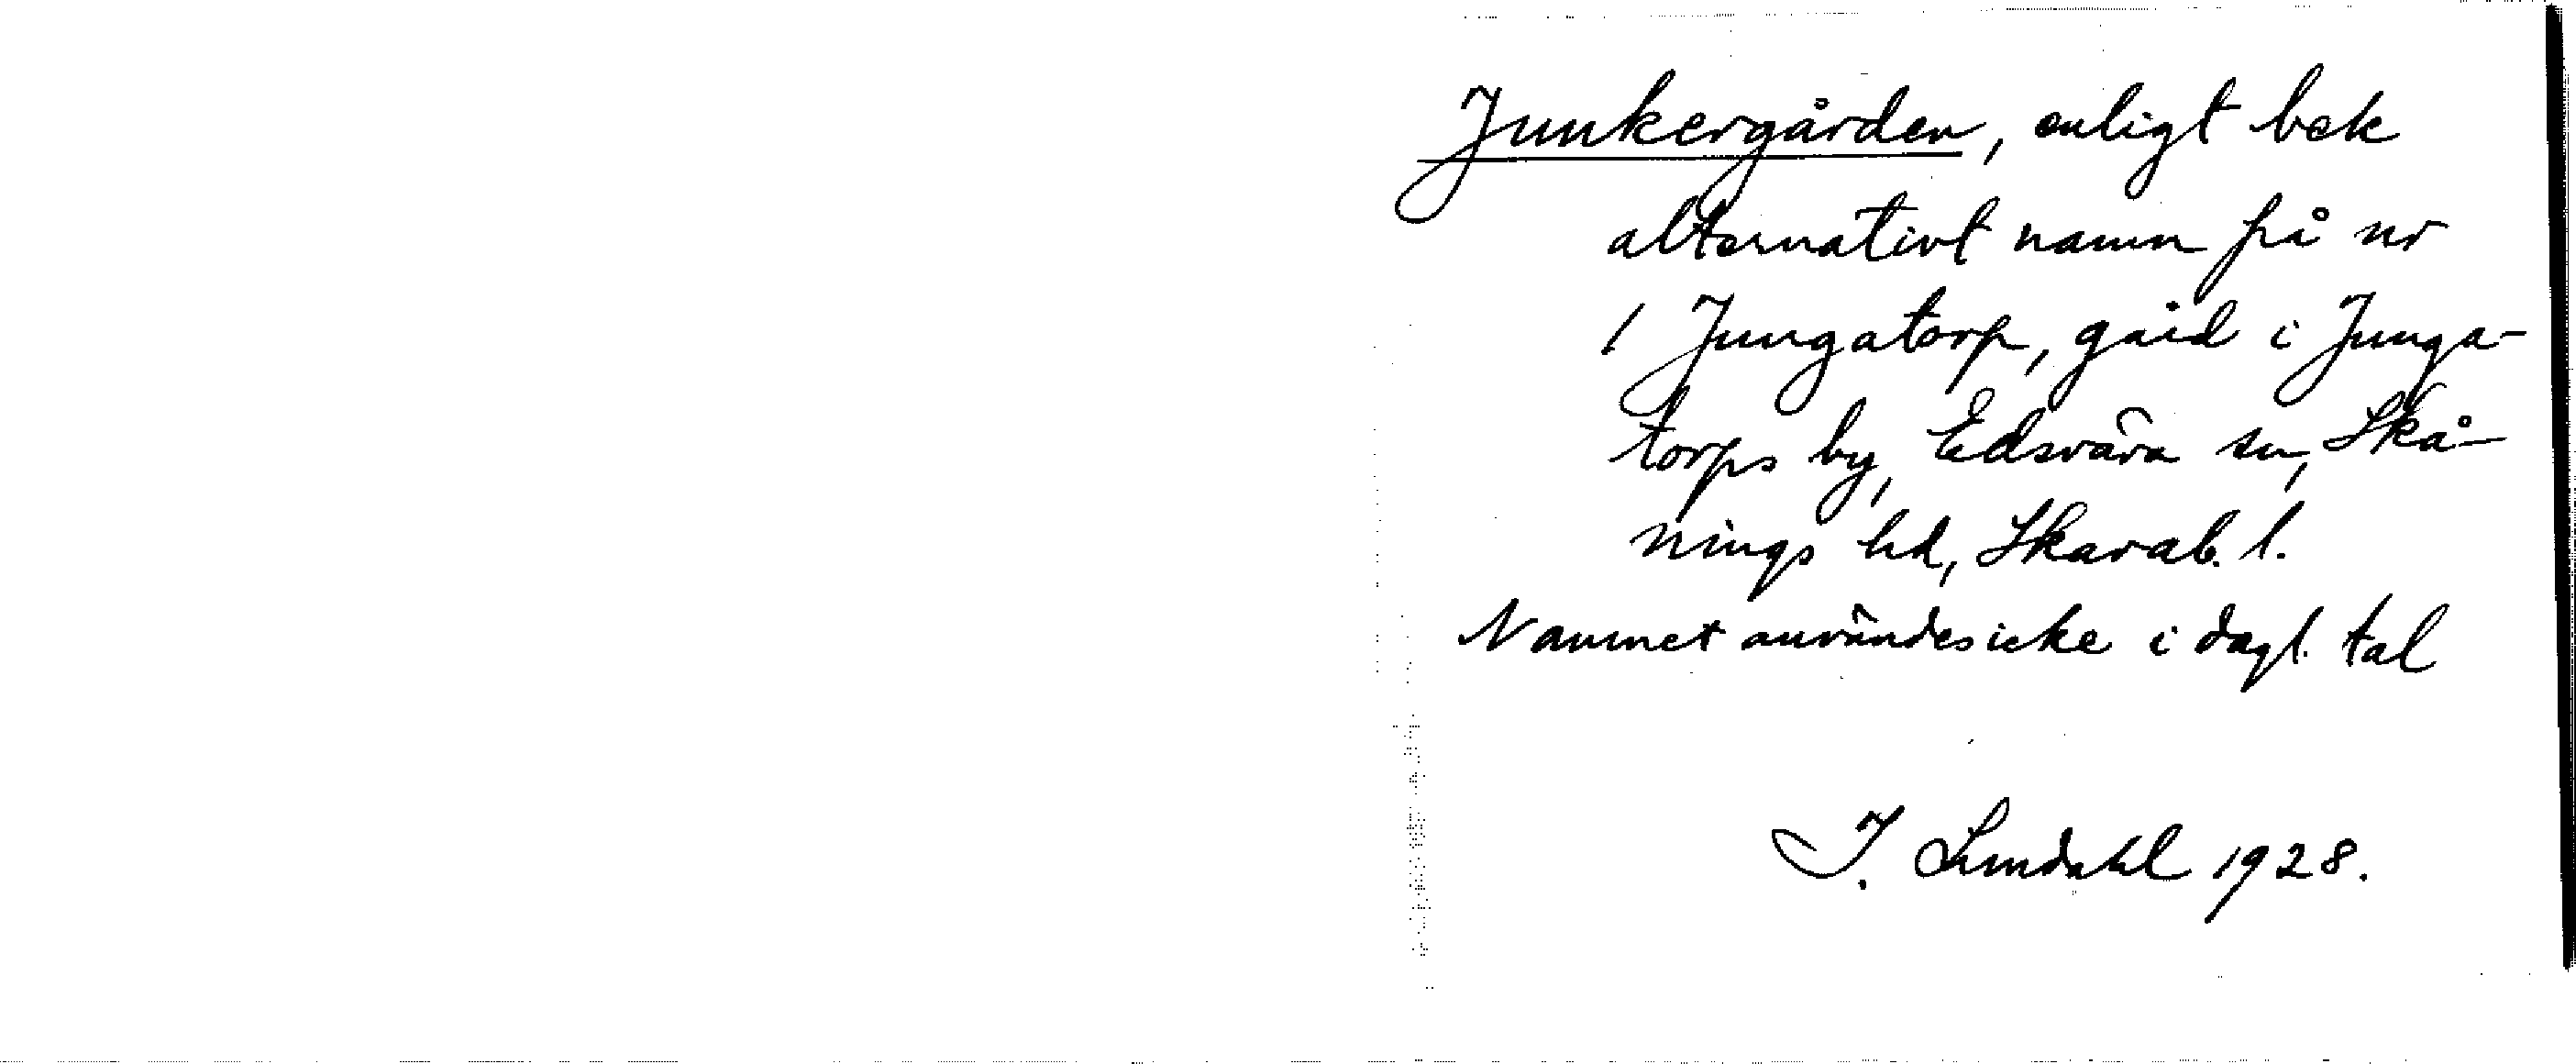 Junkergården, enligt bek
alternativt namn på nr
1 Jungatorp, gård i Junga-
torps by, Edsvära sn, Skå-
nings hd, Skarab. l.
Namnet användes icke i dagl. tal
J. Lindahl 1928.